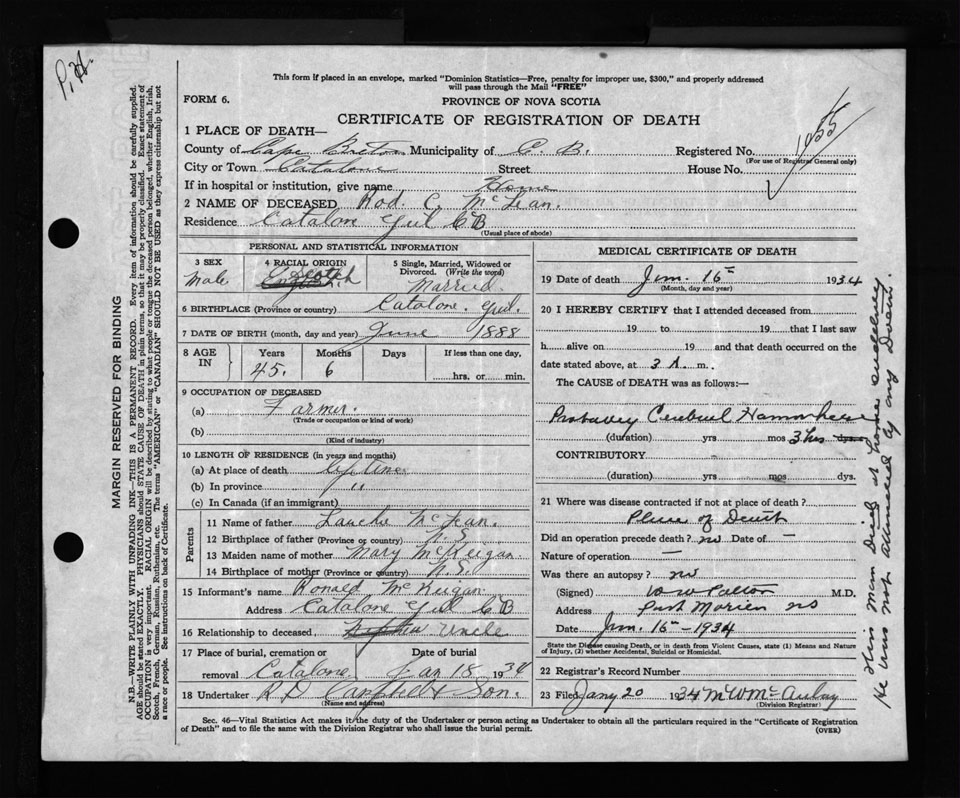 P. H.
This form if placed in an envelope, marked "Dominion Statistics—Free, penalty for improper use, $300," and properly addressed
will pass through the Mail "FREE"
FORM 6.
PROVINCE OF NOVA SCOTIA
CERTIFICATE OF REGISTRATION OF DEATH
1 PLACE OF DEATH—
County of Cape Breton Municipality of C. B. Registered No.
(For use of Registrar General only)
1055
City or Town Catalone Street House No.
If in hospital or institution, give name Home
2 NAME OF DECEASED Rod. C. McLean.
Residence Catalone Gut CB
(Usual place of abode)
PERSONAL AND STATISTICAL INFORMATION
3 SEX
Male
4 RACIAL ORIGIN
Scotch
English
5 Single, Married, Widowed or
Divorced. (Write the word)
Married
6 BIRTHPLACE (Province or country) Catalone. Gut.
7 DATE OF BIRTH (month, day and year) June 1888
8 AGE IN
Years Months Days If less than one day,
45. 6 hrs. or min.
9 OCCUPATION OF DECEASED
(a) Farmer.
(Trade or occupation or kind of work)
(b)
(Kind of industry)
10 LENGTH OF RESIDENCE (in years and months)
(a) At place of death life time
(b) In province "
(c) In Canada (if an immigrant)
Parents
11 Name of father Lauchie McLean.
12 Birthplace of father (Province or country) N. S.
13 Maiden name of mother Mary McKeigan
14 Birthplace of mother (Province or country) N. S.
15 Informant's name Ronald McKeigan
Address Catalone Gut CB
16 Relationship to deceased, Nephew Uncle
17 Place of burial, cremation or Date of burial
removal Catalone. Jan 18 1934
18 Undertaker Son.
(Name and address)
MEDICAL CERTIFICATE OF DEATH
19 Date of death Jan. 16th 1934
(Month, day and year)
20 I HEREBY CERTIFY that I attended deceased from
19 to 19 that I last saw
h alive on 19 and that death occurred on the
date stated above, at 3 A. m.
The CAUSE OF DEATH was as follows:—
Probably Cerebral Hemorrhage
(duration) yrs mos 3 hrs dys
CONTRIBUTORY
(duration) yrs. mos dys.
21 Where was disease contracted if not at place of death?
Place of Death
Did an operation precede death? no Date of —
Nature of operation —
Was there an autopsy? no
(Signed) M.D.
Address Port Morien NS
Date Jan. 16th—1934
State the Disease causing Death, or in death from Violent Causes, state (1) Means and Nature
of Injury, (2) whether Accidental, Suicidal or Homicidal.
22 Registrar's Record Number
23 Filed Jany 20 1934 McAulay
(Division Registrar)
Sec. 46—Vital Statistics Act makes it the duty of the Undertaker or person acting as Undertaker to obtain all the particulars required in the "Certificate of Registration
of Death" and to file the same with the Division Registrar who shall issue the burial permit.
(OVER)
MARGIN RESERVED FOR BINDING
N.B.—WRITE PLAINLY WITH UNFADING INK—THIS IS A PERMANENT RECORD. Every item of information should be carefully supplied.
AGE should be stated EXACTLY. PHYSICIANS should STATE CAUSE OF DEATH in plain terms, so that it may be properly classified. Exact statement of
OCCUPATION is very important. RACIAL ORIGIN will be described by stating to what people or tongue the deceased person belonged, whether English, Irish,
Scotch, French, German, Russian, Ruthenian, etc. The terms "AMERICAN" or "CANADIAN" SHOULD NOT BE USED as they express citizenship but not
a race or people. See instructions on back of Certificate.
This man Died at home suddenly
He was not attended by any Doctor.